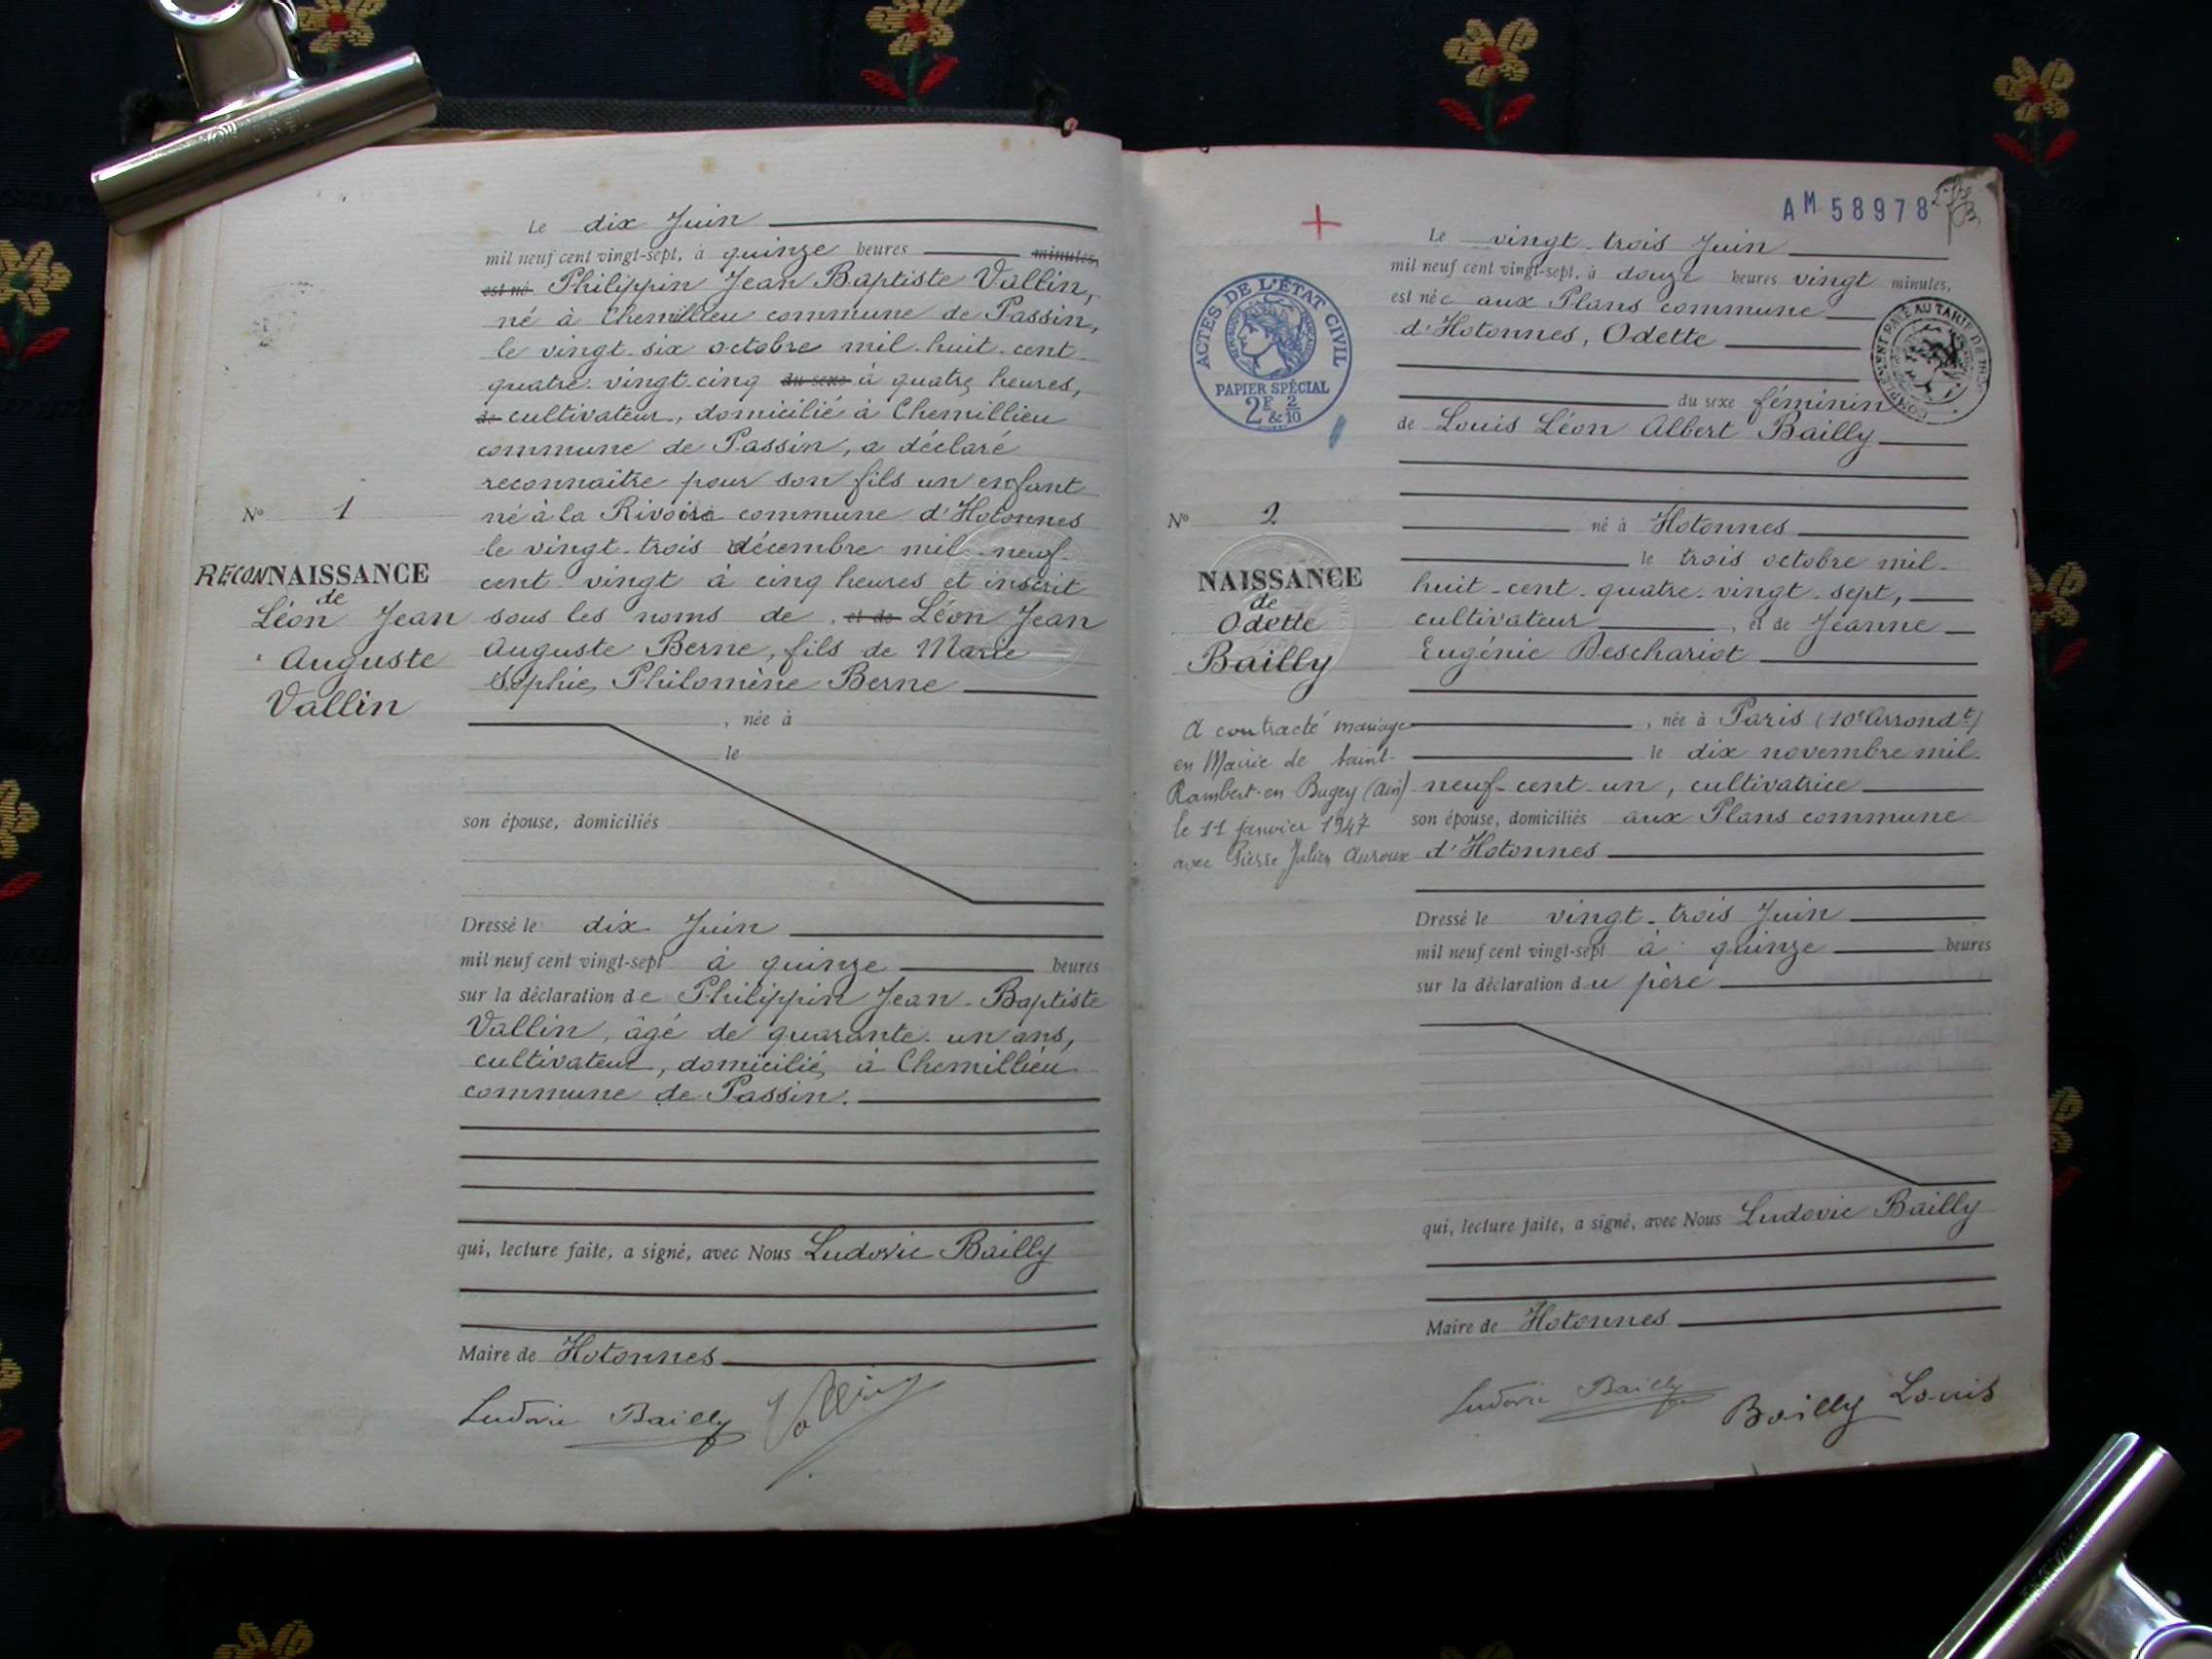 Le dix Juin
mil neuf cent vingt-sept, à quinze heures minutes,
est né Philippin Jean Baptiste Vallin,
né à Chemillieu commune de Passin,
le vingt-six octobre mil-huit-cent-
quatre-vingt-cinq du sexe à quatre heures,
de cultivateur, domicilié à Chemillieu
commune de Passin, a déclaré
reconnaître pour son fils un enfant
né à la Rivoire commune d'Hotonnes
le vingt-trois décembre mil-neuf-
cent vingt à cinq heures et inscrit
sous les noms de , et de Léon Jean
Auguste Berne, fils de Marie
Sophie, Philomène Berne
, née à
le
son épouse, domiciliés
Dressé le dix Juin
mil neuf cent vingt-sept à quinze heures
sur la déclaration de Philippin Jean-Baptiste
Vallin, âgé de quarante-un ans,
cultivateur, domicilié, à Chemillieu
commune de Passin.
qui, lecture faite, a signé, avec Nous Ludovic Bailly
Maire de Hotonnes
Ludovic Bailly Vallin
N° 1
RECONNAISSANCE
de
Léon Jean
Auguste
Vallin
AM 58978
Le vingt-trois Juin
mil neuf cent vingt-sept, à douze heures vingt minutes,
est née aux Plans commune
d'Hotonnes, Odette
du sexe féminin
de Louis Léon Albert Bailly
né à Hotonnes
le trois octobre mil-
huit-cent-quatre-vingt-sept,
cultivateur , et de Jeanne
Eugénie Deschariot
, née à Paris (10e Arrondt)
le dix novembre mil-
neuf-cent-un, cultivatrice
son épouse, domiciliés aux Plans commune
d'Hotonnes
Dressé le vingt-trois Juin
mil neuf cent vingt-sept à quinze heures
sur la déclaration du père
qui, lecture faite, a signé, avec Nous Ludovic Bailly
Maire de Hotonnes
Ludovic Bailly Bailly Louis
ACTES DE L'ÉTAT CIVIL
PAPIER SPÉCIAL
2F & 2/10
N° 2
NAISSANCE
de
Odette
Bailly
A contracté mariage
en Mairie de Saint-
Rambert-en Bugey (Ain)
le 11 janvier 1947
avec Pierre Julien Auroux